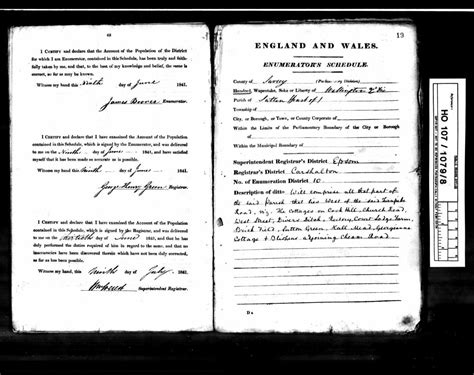 I CERTIFY and declare that the Account of the Population of the District
for which I am Enumerator, contained in this Schedule, has been truly and faith-
fully taken by me, and that, to the best of my knowledge and belief, the same is
correct, so far as may be known.
Witness my hand this Ninth day of June 1841.
James Enumerator.
I CERTIFY and declare that I have examined the Account of the Population
contained in this Schedule, which is signed by the Enumerator, and have satisfied
myself that it has been made so accurate as is possible.
Witness my hand this day of June 1841.
George Henry Green Registrar.
I CERTIFY and declare that I have examined the Account of the Population
contained in this Schedule, which is signed by the Registrar, and was delivered
to me on day of June 1841, and that he has duly
performed the duties required of him in regard to the same, and that no
inaccuracies have been discovered therein which have not been duly corrected,
so far as is possible.
Witness my hand, this ninth day of July 1841.
Superintendent Registrar.
19
ENGLAND AND WALES.
ENUMERATOR'S SCHEDULE.
County of Surrey (Parliamentary Division)
Hundred, Wapentake, Soke or Liberty of Wallington
Parish of Sutton (Part of)
Township of
City, or Borough, or Town, or County Corporate of
Within the Limits of the Parliamentary Boundary of the City or Borough
of
Within the Municipal Boundary of
Superintendent Registrar's District Epsom
Registrar's District Carshalton
No of Enumeration District 10
Description of ditto Will comprise all that part of
the said Parish that lies West of the said Turnpike
Road, viz. The Cottages on Cock Hill, Church Road,
West Street, Ditch, Rectory, Court Lodge Farm,
Brick Field, Sutton Green, Hall Mead, Georgiana
Cottage & adjoining Cheam Road.
D 2
Reference
HO 107/1079/8